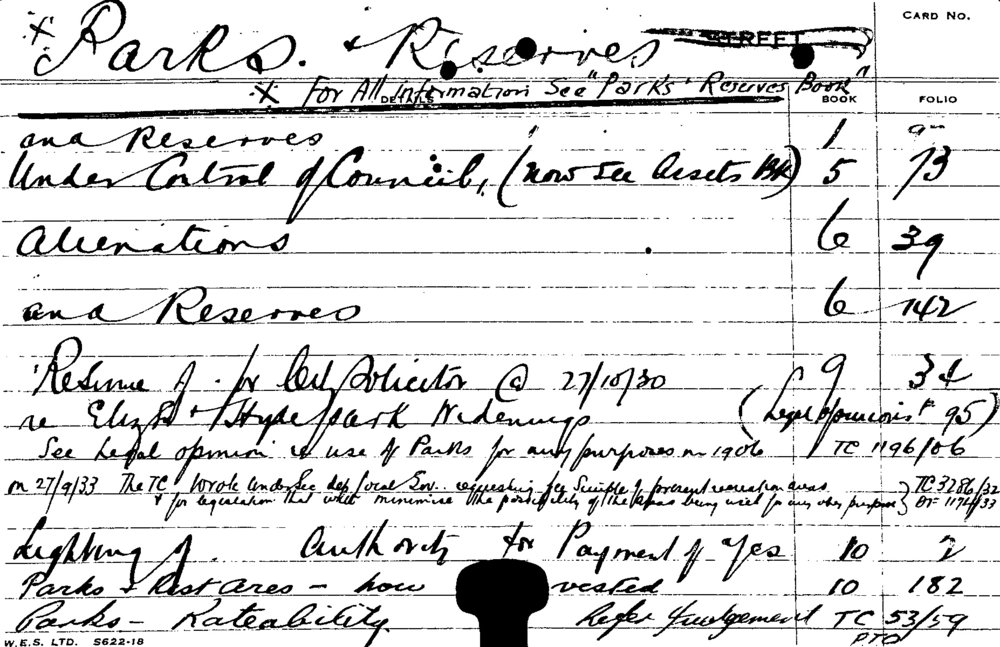 CARD No.
x Parks. & Reserves STREET
x For All Information See "Parks & Reserves Book"
DETAILS BOOK FOLIO
and Reserves 1
Under Control of Council, (now see Assets Bk) 5 73
Alienations 6 39
and Reserves 6 142
Resume of . for City Solicitor @ 27/10/30 9 34
re Eliz St & Hyde Park Widenings (Legal opinions F 95)
See Legal opinion re use of Parks for any purposes in 1906 TC 1196/06
on 27/9/33 The TC wrote Under Sec dep local Gov. requesting fee Simple of present recreation areas } TC 3286/32
& for legislation that will minimise the possibility of the areas being used for any other purpose }
Lighting of. Authority for Payment of Yes 10 2
Parks & Rest Ares - how vested 10 182
Parks - Rateability. Refer Judgement TC 53/59
PTO
W.E.S. LTD. S622-18